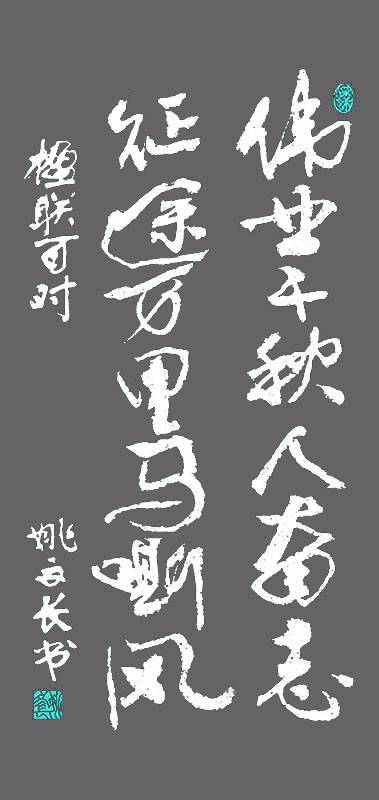 伟业千秋人奋志
征途万里马嘶风
楹联
姚文长书